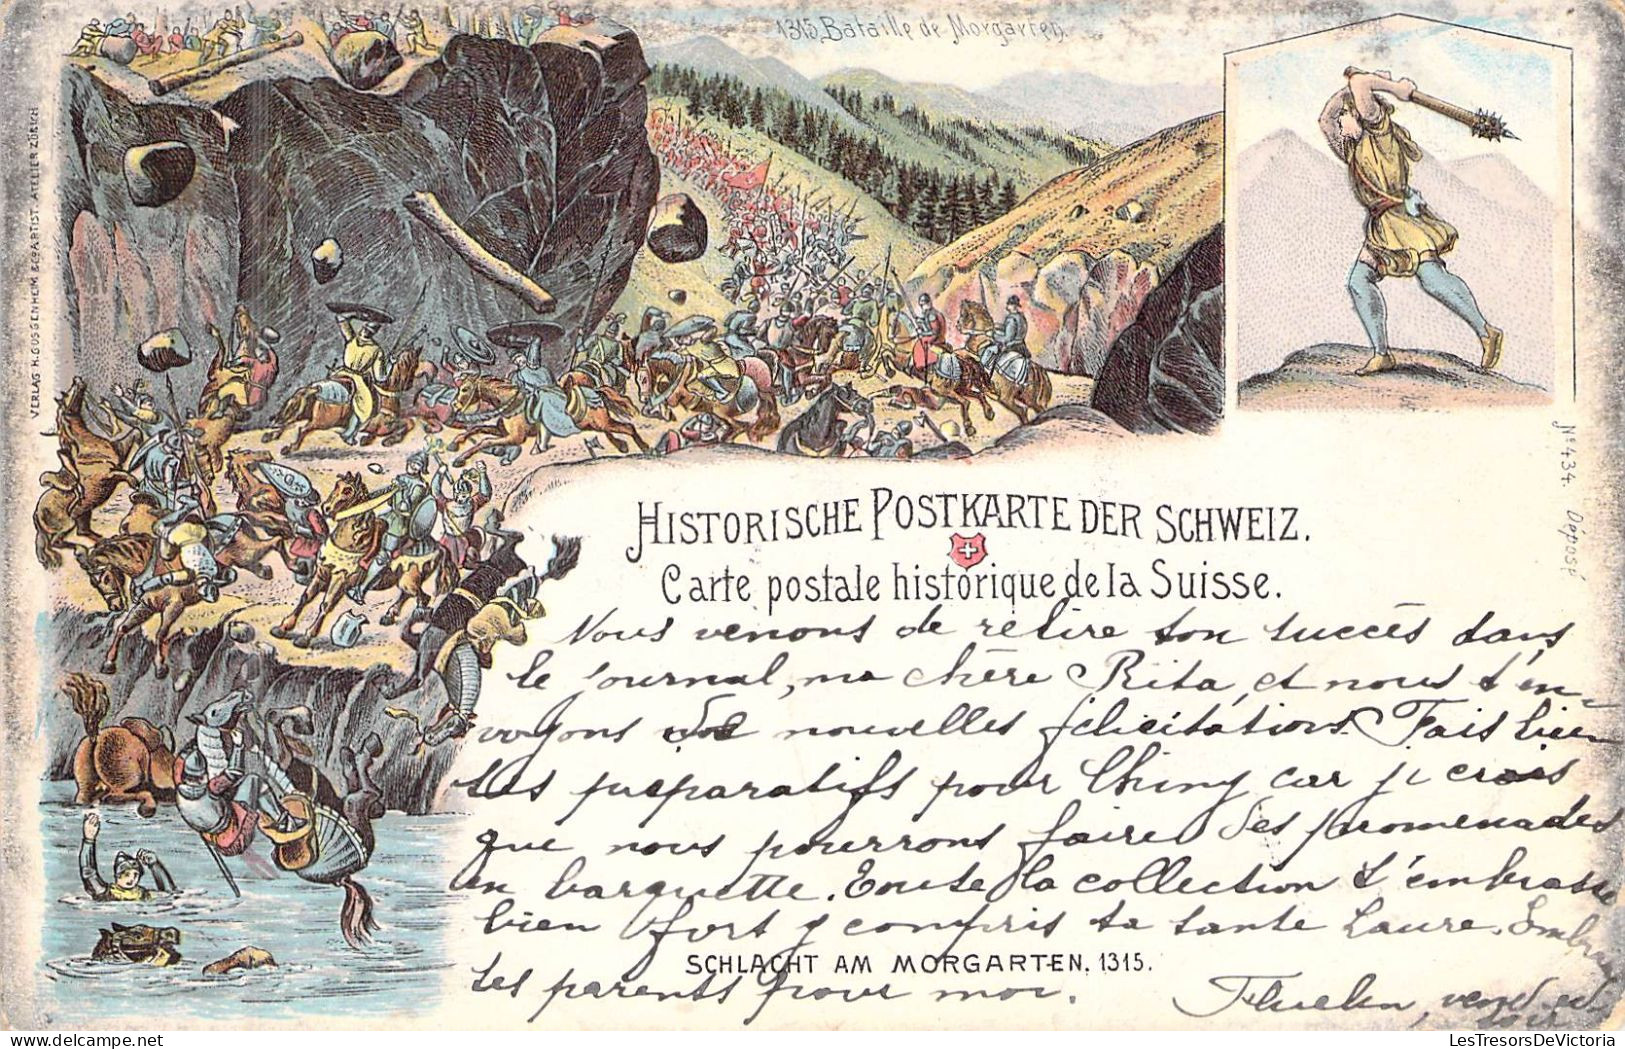 1315, Bataille de Morgarten.
VERLAG H. GUGGENHEIM & Co ARTIST. ATELIER ZÜRICH
No 434. Déposé
HISTORISCHE POSTKARTE DER SCHWEIZ.
Carte postale historique de la Suisse.
Nous venons de relire ton succès dans
le journal, ma chère Rita, et nous t'en-
voyons nos nouvelles félicitations. Fais bien
tes préparatifs pour Chiny car je crois
que nous pourrons faire des promenades
en barquette. Toute la collection t'embrasse
bien fort y compris ta tante Laure. Embrasse
SCHLACHT AM MORGARTEN. 1315.
tes parents pour moi.
Fluelen, vendredi
soir
LesTresorsDeVictoria
LesTresorsDeVictoria.com